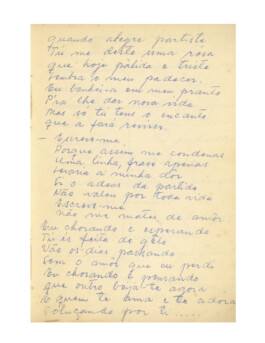 quando alegre partiste
Tú me deste uma rosa
que hoje pálida e triste
Lembra o meu padecer.
Eu banhei-a em meu pranto
P'ra lhe dar nova vida
Mas só tu tens o encanto
que a fará reviver.
- Escreve-me
Porque assim me condenas
Uma linha, frase apenas
Seria a minha dor
Se o adeus da partida
Não valeu por toda vida
Escreve-me
não me mates de amôr
Eu chorando e esperando
Tú és feita de gêlo
Vão os dias passando
Sem o amôr que eu perdi
Eu chorando e penando
que outro beija-te agora
E quem te ama e te adora
Soluçando por ti .....